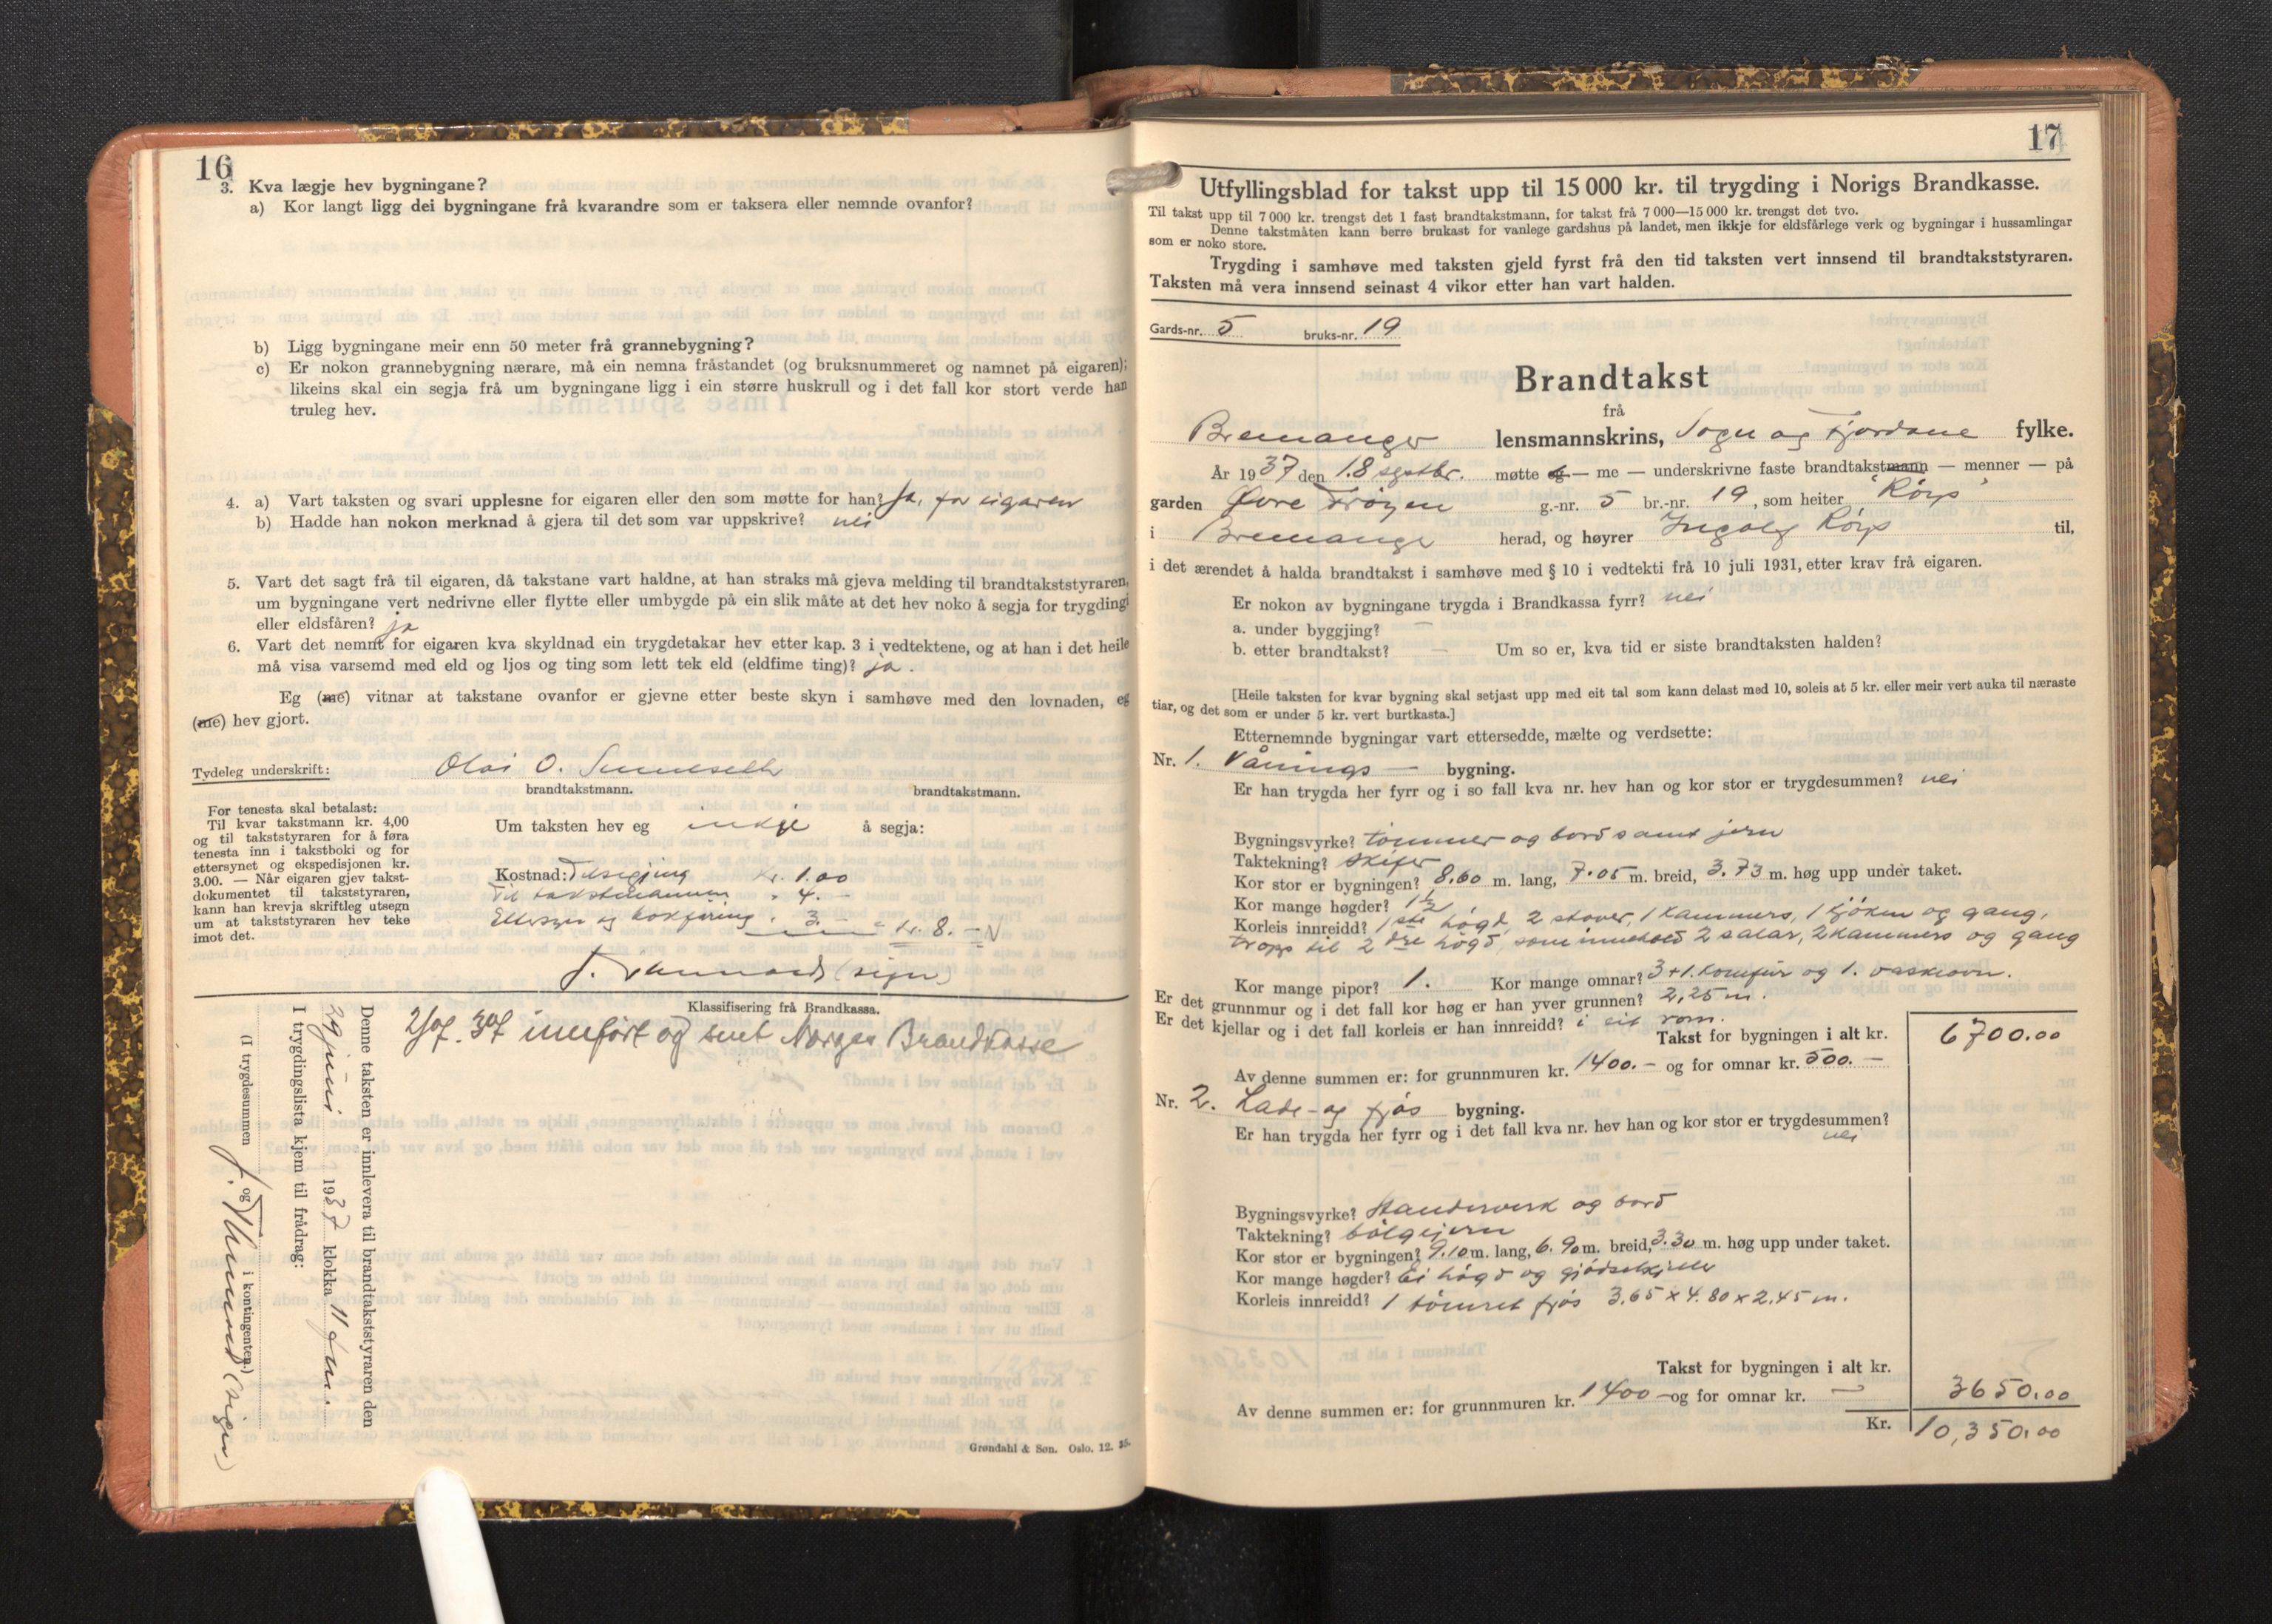 16
3. Kva lægje hev bygningane?
a) Kor langt ligg dei bygningane frå kvarandre som er taksera eller nemnde ovanfor?
b) Ligg bygningane meir enn 50 meter frå grannebygning?
c) Er nokon grannebygning nærare, må ein nemna fråstandet (og bruksnummeret og namnet på eigaren);
likeins skal ein segja frå um bygningane ligg i ein større huskrull og i det fall kor stort verde han
truleg hev.
4. a) Vart taksten og svari upplesne for eigaren eller den som møtte for han? Ja, for eigaren
b) Hadde han nokon merknad å gjera til det som var uppskrive? nei
5. Vart det sagt frå til eigaren, då takstane vart haldne, at han straks må gjeva melding til brandtakststyraren,
um bygningane vert nedrivne eller flytte eller umbygde på ein slik måte at det hev noko å segja for trygdingi
eller eldsfåren? ja
6. Vart det nemnt for eigaren kva skyldnad ein trygdetakar hev etter kap. 3 i vedtektene, og at han i det heile
må visa varsemd med eld og ljos og ting som lett tek eld (eldfime ting)? ja.
Eg (me) vitnar at takstane ovanfor er gjevne etter beste skyn i samhøve med den lovnaden, eg
(me) hev gjort.
Tydeleg underskrift: Olai O.
brandtakstmann. brandtakstmann.
For tenesta skal betalast:
Til kvar takstmann kr. 4,00
og til takststyraren for å føra
tenesta inn i takstboki og for
ettersynet og ekspedisjonen kr.
3.00. — Når eigaren gjev takst-
dokumentet til takststyraren,
kann han krevja skriftleg utsegn
um at takststyraren hev teke
imot det.
Um taksten hev eg inkje å segja:
Kostnad: Tilsegjing kr. 1.00
Til takstmannen " 4.-
Ettersyn og bokføring " 3.- = kr. 8.-
(sign)
Klassifisering frå Brandkassa.
2/7. 37 innført og sent Norges Brandkasse
Denne taksten er innlevera til brandtakststyraren den
29 juni 1937 klokka 11 fm.
I trygdingslista kjem til frådrag:
(I trygdesummen og i kontingenten.)
(sign)
Grøndahl & Søn. Oslo. 12. 35.
17
Utfyllingsblad for takst upp til 15 000 kr. til trygding i Norigs Brandkasse.
Til takst upp til 7 000 kr. trengst det 1 fast brandtakstmann, for takst frå 7 000—15 000 kr. trengst det tvo.
Denne takstmåten kann berre brukast for vanlege gardshus på landet, men ikkje for eldsfårlege verk og bygningar i hussamlingar
som er noko store.
Trygding i samhøve med taksten gjeld fyrst frå den tid taksten vert innsend til brandtakststyraren.
Taksten må vera innsend seinast 4 vikor etter han vart halden.
Gards-nr. 5 bruks-nr. 19
Brandtakst
frå
Bremanger lensmannskrins, Sogn og Fjordane fylke.
År 1937 den 18 septbr. møtte eg — me — underskrivne faste brandtakstmann — menner — på
garden Øvre Frøyen g.-nr. 5 br.-nr. 19, som heiter "Rørs"
i Bremanger herad, og høyrer Ingolf Rørs til,
i det ærendet å halda brandtakst i samhøve med § 10 i vedtekti frå 10 juli 1931, etter krav frå eigaren.
Er nokon av bygningane trygda i Brandkassa fyrr? nei
a. under byggjing? —
b. etter brandtakst? — Um so er, kva tid er siste brandtaksten halden?
[Heile taksten for kvar bygning skal setjast upp med eit tal som kann delast med 10, soleis at 5 kr. eller meir vert auka til næraste
tiar, og det som er under 5 kr. vert burtkasta.]
Etternemnde bygningar vart ettersedde, mælte og verdsette:
Nr. 1. Vånings — bygning.
Er han trygda her fyrr og i so fall kva nr. hev han og kor stor er trygdesummen? nei
Bygningsvyrke? tømmer og bord samt jern
Taktekning? skifer
Kor stor er bygningen? 8.60 m. lang, 7.05 m. breid, 3.73 m. høg upp under taket.
Kor mange høgder? 1½
Korleis innreidd? 1ste høgd, 2 stover, 1 kammers, 1 kjøken og gang,
tropp til 2dre høgd, som inneheld 2 salar, 2 kammers og gang
Kor mange pipor? 1. Kor mange omnar? 3 + 1. komfur og 1. vaskeovn.
Er det grunnmur og i det fall kor høg er han yver grunnen? 2,25 m.
Er det kjellar og i det fall korleis er han innreidd? i eit rom.
Takst for bygningen i alt kr. 6700.00
Av denne summen er: for grunnmuren kr. 1400.— og for omnar kr. 500.—
Nr. 2. Lade- og fjøs bygning.
Er han trygda her fyrr og i det fall kva nr. hev han og kor stor er trygdesummen?
nei
Bygningsvyrke? Standerverk og bord
Taktekning? bølgejern
Kor stor er bygningen? 9.10 m. lang, 6.90 m. breid, 3.30 m. høg upp under taket.
Kor mange høgder? Ei høgd og gjødselkjeller
Korleis innreidd? 1 tømret fjøs 3.65 x 4.80 x 2.45 m.
Takst for bygningen i alt kr. 3650.00
Av denne summen er: for grunnmuren kr. 1400 — og for omnar kr. —
Kr. 10,350.00